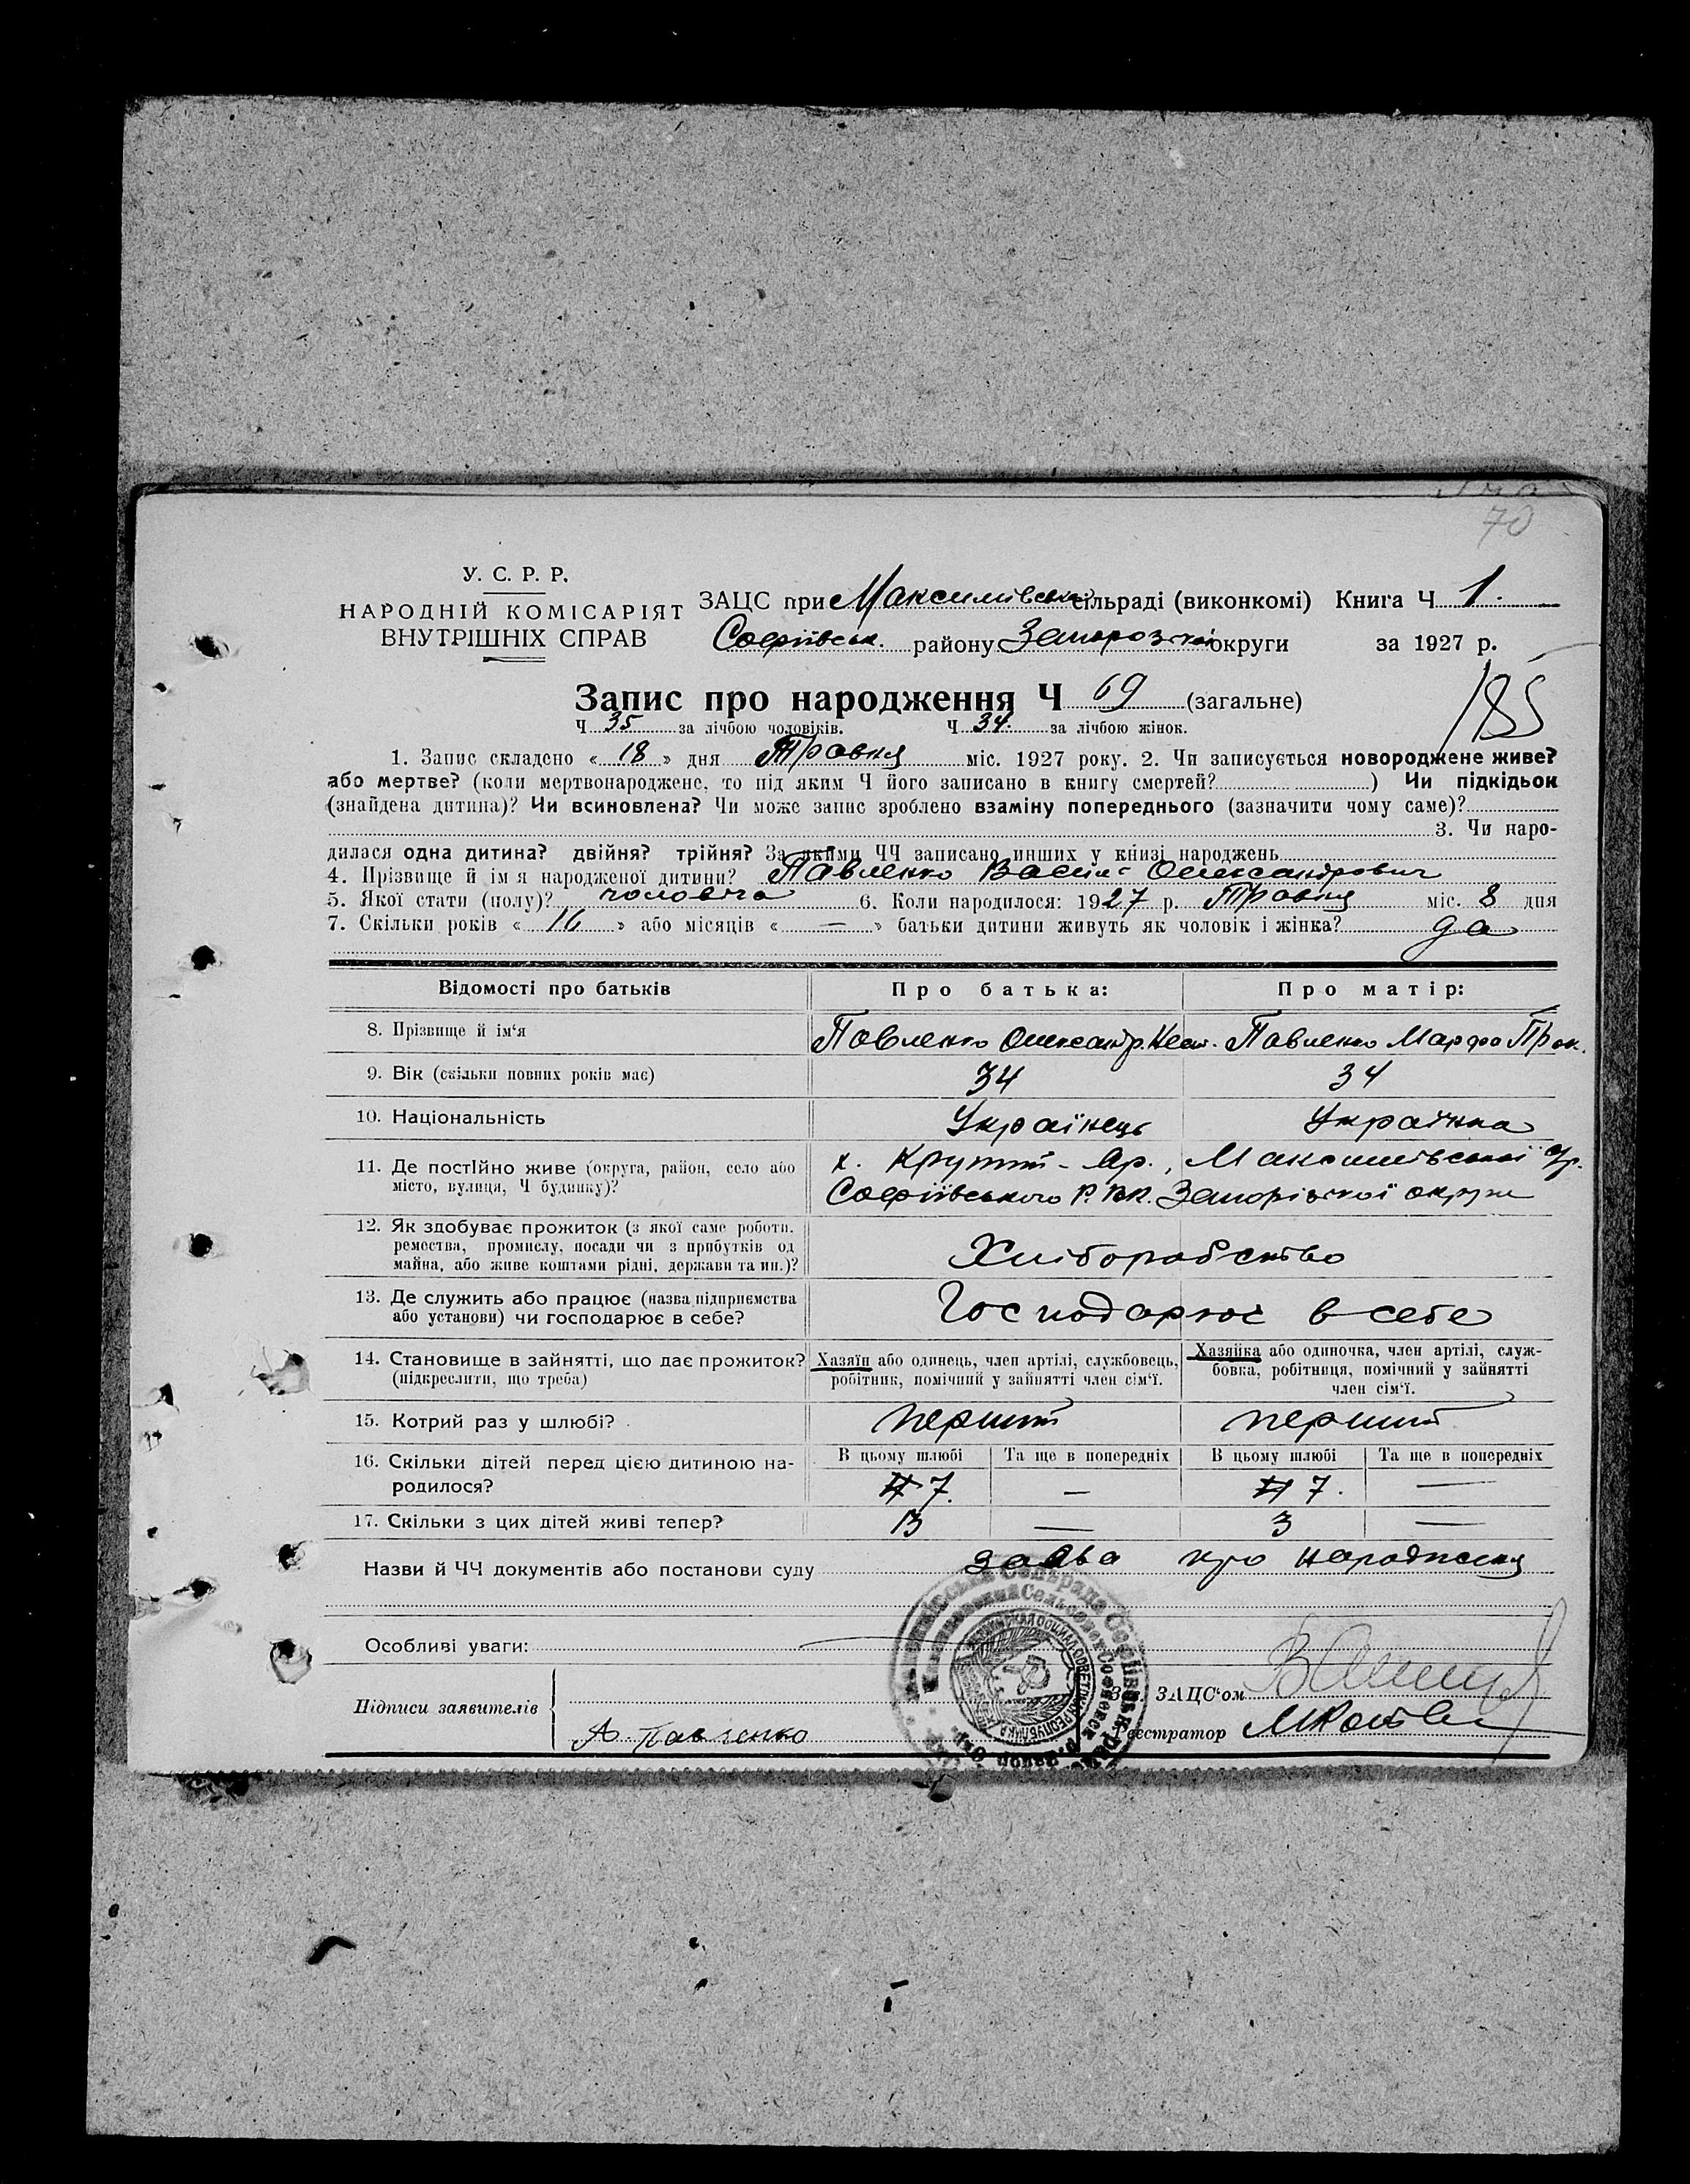 70
У. С. Р. Р.
НАРОДНІЙ КОМІСАРІЯТ
ВНУТРІШНІХ СПРАВ
ЗАЦС при Максимівськ. сільраді (виконкомі) Книга Ч 1.
Софіївськ. району Запорозької округи за 1927 р.
185
Запис про народження Ч 69 (загальне)
Ч 35 за лічбою чоловіків. Ч 34. за лічбою жінок.
1. Запис складено « 18 » дня Травня міс. 1927 року. 2. Чи записується новороджене живе?
або мертве? (коли мертвонароджене, то під яким Ч його записано в книгу смертей? ) Чи підкідьок
(знайдена дитина)? Чи всиновлена? Чи може запис зроблено взаміну попереднього (зазначити чому саме)?
3. Чи наро-
дилася одна дитина? двійня? трійня? За якими ЧЧ записано инших у книзі народжень
4. Прізвище й ім я народженої дитини? Павленко Василь Олександрович
5. Якої стати (полу)? чоловіча 6. Коли народилося: 1927 р. Травня міс. 8 дня
7. Скільки років « 16 » або місяців « — » батьки дитини живуть як чоловік і жінка? да
Відомості про батьків Про батька: Про матір:
8. Прізвище й ім‘я Павленко Олександр. Павленко Марфа Прок.
9. Вік (скільки повних років має) 34 34
10. Національність Українець Українка
11. Де постійно живе (округа, район, село або х. Крутий-Яр., Максимівської
місто, вулиця, Ч будинку)? Софіївського Р.В.К. Запорізької округи
12. Як здобуває прожиток (з якої саме роботи,
ремества, промислу, посади чи з прибутків од Хліборобство
майна, або живе коштами рідні, держави та ин.)?
13. Де служить або працює (назва підприємства Господарює в себе
або установи) чи господарює в себе?
14. Становище в зайнятті, що дає прожиток? Хазяїн або одинець, член артілі, службовець, Хазяйка або одиночка, член артілі, служ-
(підкреслити, що треба) робітник, помічний у зайнятті член сім‘ї. бовка, робітниця, помічний у зайнятті
член сім‘ї.
15. Котрий раз у шлюбі? перший перший
16. Скільки дітей перед цією дитиною на- В цьому шлюбі Та ще в попередніх В цьому шлюбі Та ще в попередніх
родилося? 7. — 7. —
17. Скільки з цих дітей живі тепер? 3 — 3 —
Назви й ЧЧ документів або постанови суду заява про народження
Особливі уваги:
Підписи заявителів
Зав. ЗАЦС‘ом
А. Павленко
Реєстратор